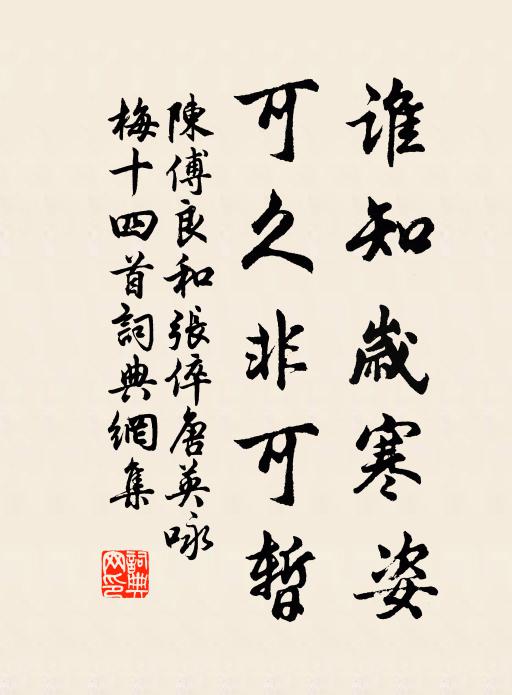 誰知歲寒姿
可久非可暫
陳傅良和張倅唐英咏
梅十四首詞典網集
詞典網印